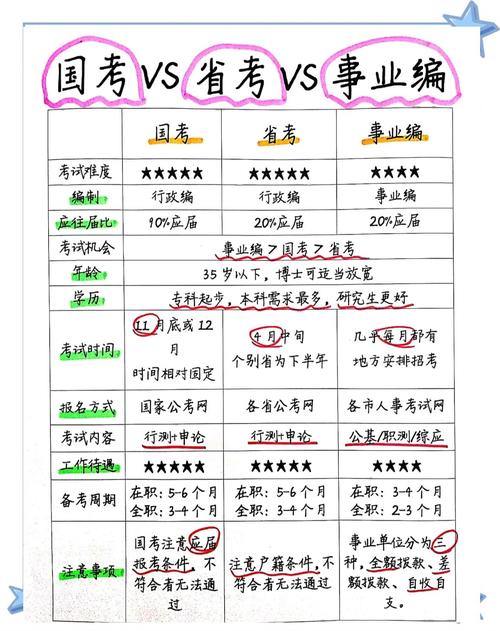 国考 VS 省考 VS 事业编
国考 省考 事业编
考试难度 ★★★★★ ★★★★★ ★★★★
编制 行政编 行政编 事业编
应往届比 90%应届 20%应届 20%应届
考试机会 事业编>国考>省考
年龄 35岁以下，博士可适当放宽
学历 专科起步，本科需求最多，研究生更好
考试时间
11月底或12
月
时间相对固定
4月中旬
个别省为下半年
几乎每月都有
地方安排招考
报名方式 国家公考网 各省公考网 各市人事考试网
考试内容 行测+申论 行测+申论 公基/职测/综应
工作待遇 ★★★★★ ★★★★★ ★★★★
备考周期
在职：5-6个月
全职：3-4个月
在职：5-6个月
全职：3-4个月
在职：3-4个月
全职：2-3个月
注意事项
国考注意应届
报考条件，不
符合者无法通
过
注意户籍条件，不
符合者无法通过
事业单位分为三
种，全额拨款、差
额拨款、自收自
支。